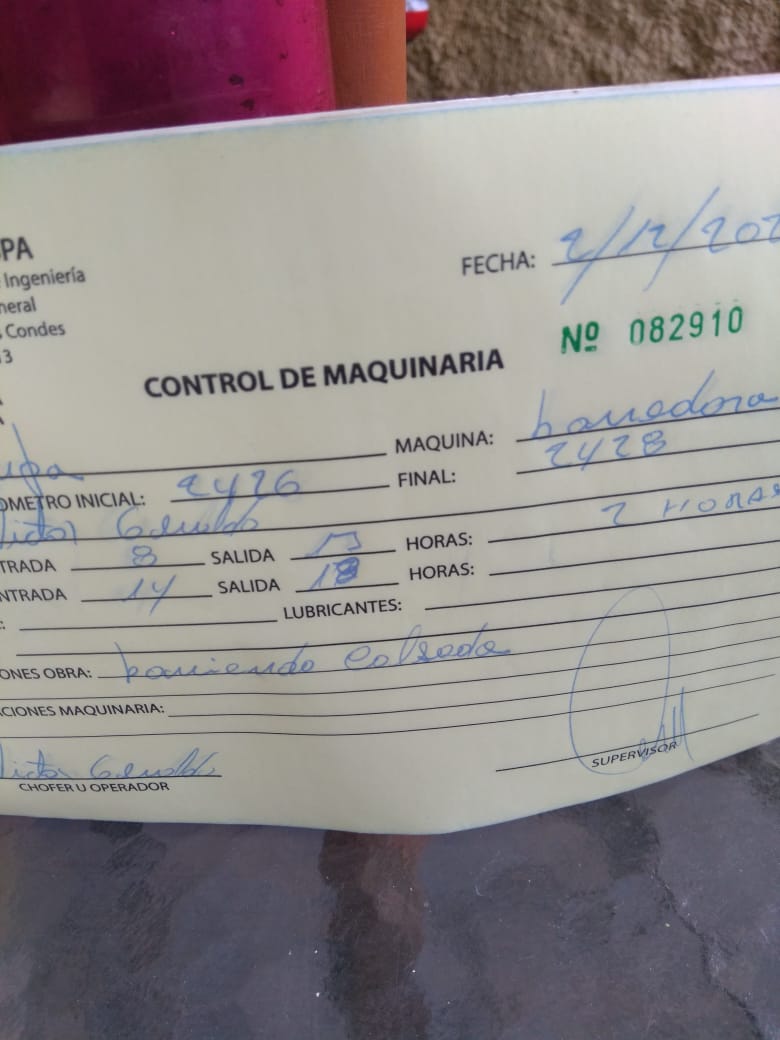 PA
Ingeniería
neral
Condes
3
FECHA: 2/12/202
Nº 082910
CONTROL DE MAQUINARIA
upa MAQUINA: barredora
OMETRO INICIAL: 2426 FINAL: 2428
Victor Geraldo 2 HORAS
TRADA 8 SALIDA 13 HORAS:
NTRADA 14 SALIDA 18 HORAS:
: LUBRICANTES:
ONES OBRA: barriendo Calsada
CIONES MAQUINARIA:
Victor Geraldo
CHOFER U OPERADOR SUPERVISOR